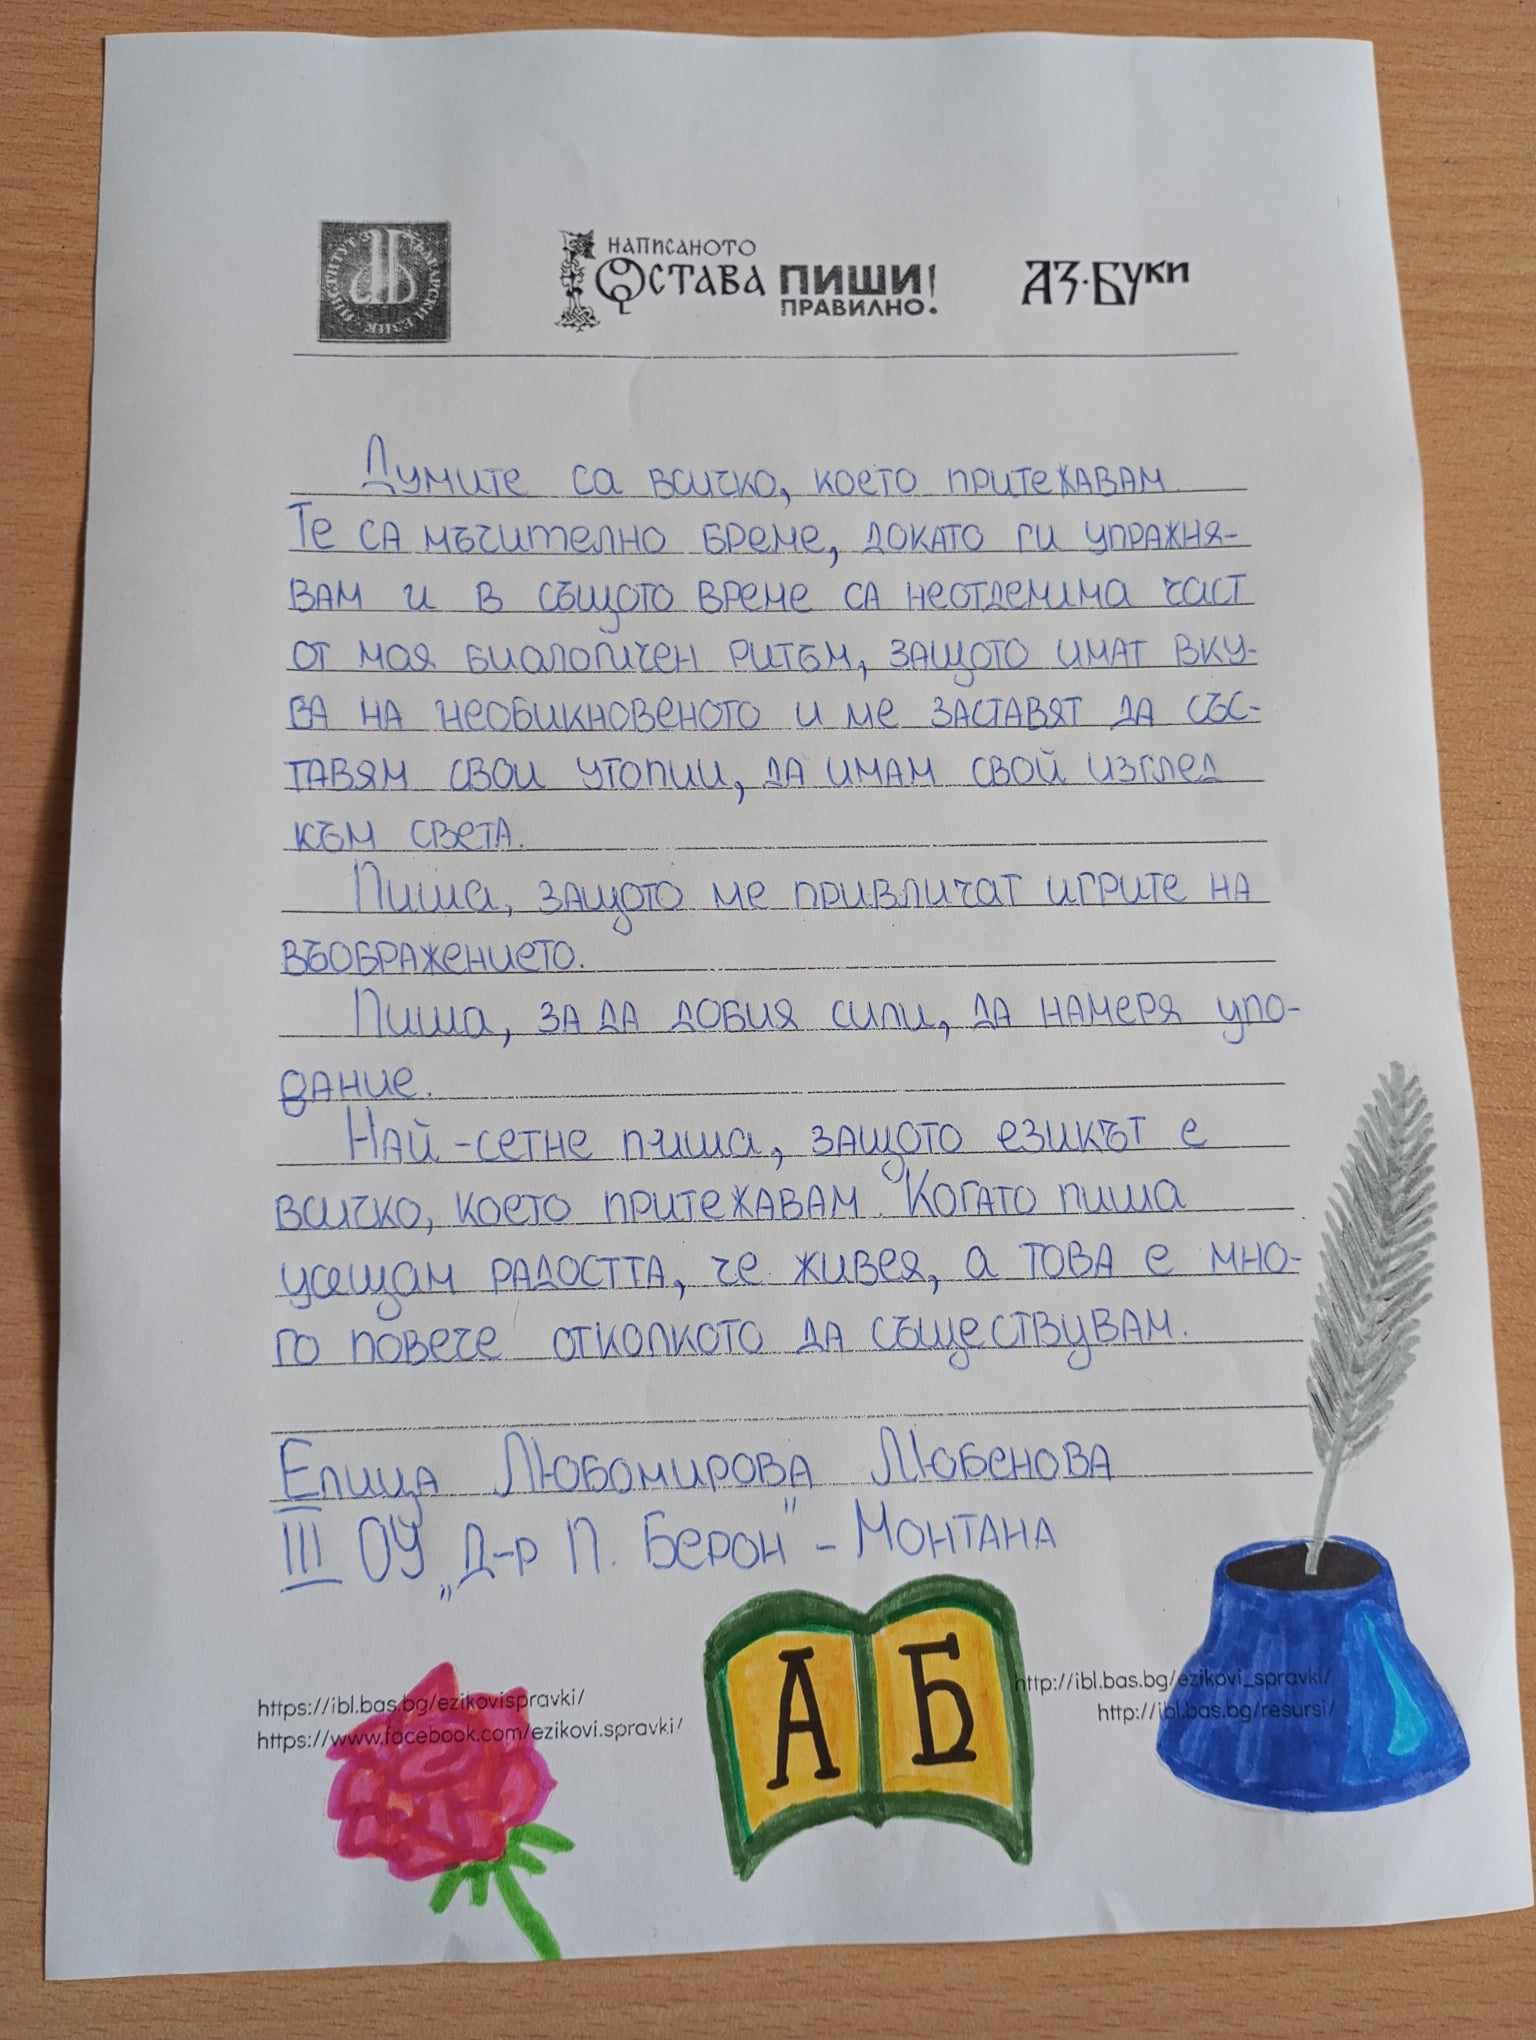 ИНСТИТУТ ЗА БЪЛГАРСКИ ЕЗИК
НАПИСАНОТО
ОСТАВА ПИШИ!
ПРАВИЛНО.
АЗ·БУКИ
Думите са всичко, което притежавам.
Те са мъчително бреме, докато ги упражня-
вам и в същото време са неотделима част
от моя биологичен ритъм, защото имат вку-
ва на необикновеното и ме заставят да със-
тавям свои утопии, да имам свой изглед
към света.
Пиша, защото ме привличат игрите на
въображението.
Пиша, за да добия сили, да намеря упо-
вание.
Най-сетне пиша, защото езикът е
всичко, което притежавам. Когато пиша
усещам радостта, че живея, а това е мно-
го повече отколкото да съществувам.
Елица Любомирова Любенова
III ОУ „Д-р П. Берон" - Монтана
А Б
https://ibl.bas.bg/ezikovispravki/
https://www.facebook.com/ezikovi.spravki/
http://ibl.bas.bg/ezikovi_spravki/
http://ibl.bas.bg/resursi/